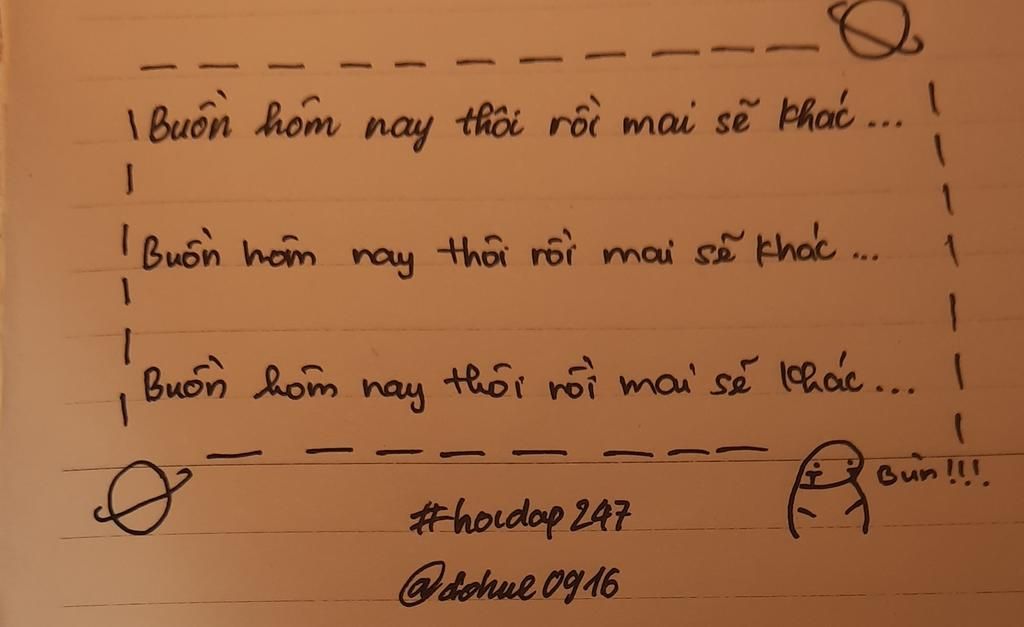 Buồn hôm nay thôi rồi mai sẽ khác...
Buồn hôm nay thôi rồi mai sẽ khác...
Buồn hôm nay thôi rồi mai sẽ khác...
Bùn!!!.
#hoidap247
@dohue0916